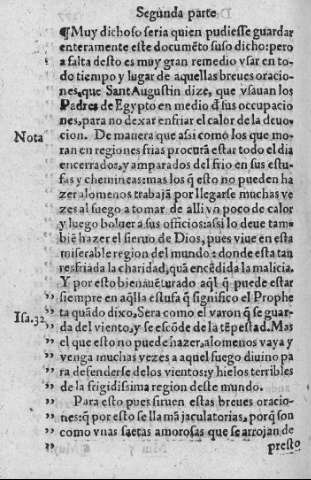 Segunda parte
¶Muy dichoso seria quien pudiesse guardar
enteramente este documẽto suso dicho: pero
a falta desto es muy gran remedio vsar en to
do tiempo y lugar de aquellas breues oracio-
nes, que Sant Augustin dize, que vsauan los
Padres de Egypto en medio đ sus occupacio
nes, para no dexar enfriar el calor de la deuo-
Nota
cion. De manera que assi como los que mo-
ran en regiones frias procurã estar todo el dia
encerrados, y amparados del frio en sus estu-
fas y chemineas: mas los q̃ esto no pueden ha
zer alomenos trabajã por llegarse muchas ve
zes al fuego a tomar de alli vn poco de calor
y luego boluer a sus officios: assi lo deue tam
biẽ hazer el sieruo de Dios, pues viue en esta
miserable region del mundo: donde esta tan
resfriada la charidad, quã encẽdida la malicia.
Y por esto bienauẽturado aq̃l q̃ puede estar
siempre en aq̃lla estufa q̃ significo el Prophe
Isa. 32
ta quãdo dixo, Sera como el varon q̃ se guar-
„ da del viento, y se escõde de la tẽpestad. Mas
„ el que esto no puede hazer, alomenos vaya y
„ venga muchas vezes a aquel fuego diuino pa
„ ra defenderse de los vientos: y hielos terribles
„ de la frigidissima region deste mundo.
„ Para esto pues siruen estas breues oracio-
„ nes: q̃ por esto se llamã jaculatorias, porq̃ son
„ como vnas saetas amorosas que se arrojan de
„ presto